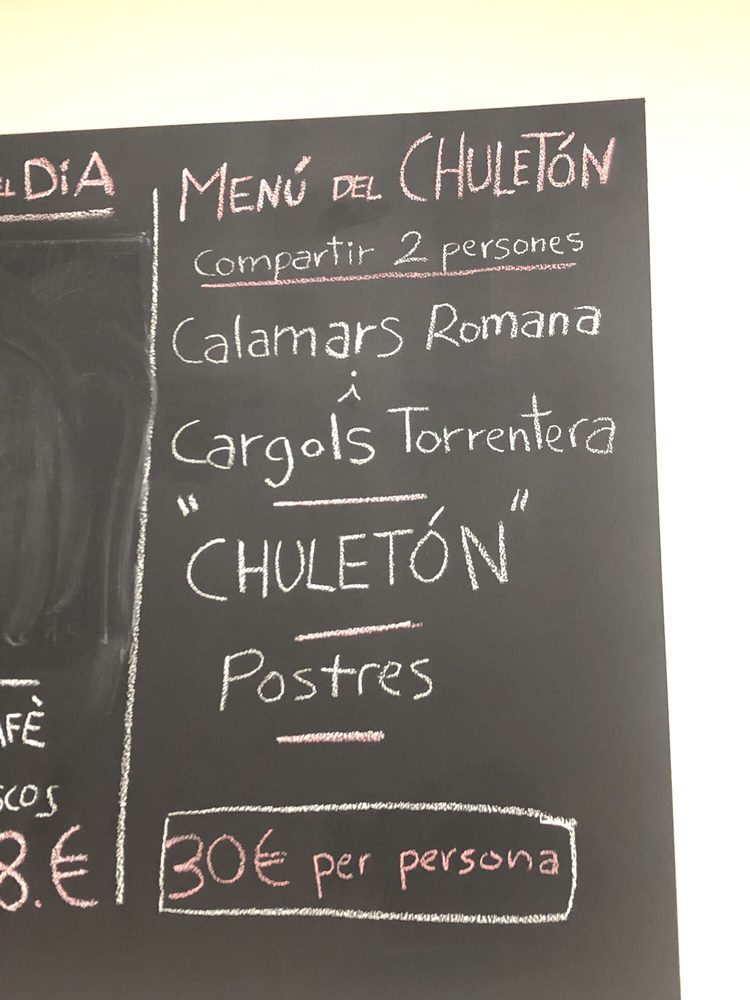 DÍA
MENÚ DEL CHULETÓN
Compartir 2 persones
Calamars Romana
i
Cargols Torrentera
"CHULETÓN"
Postres
30€ per persona